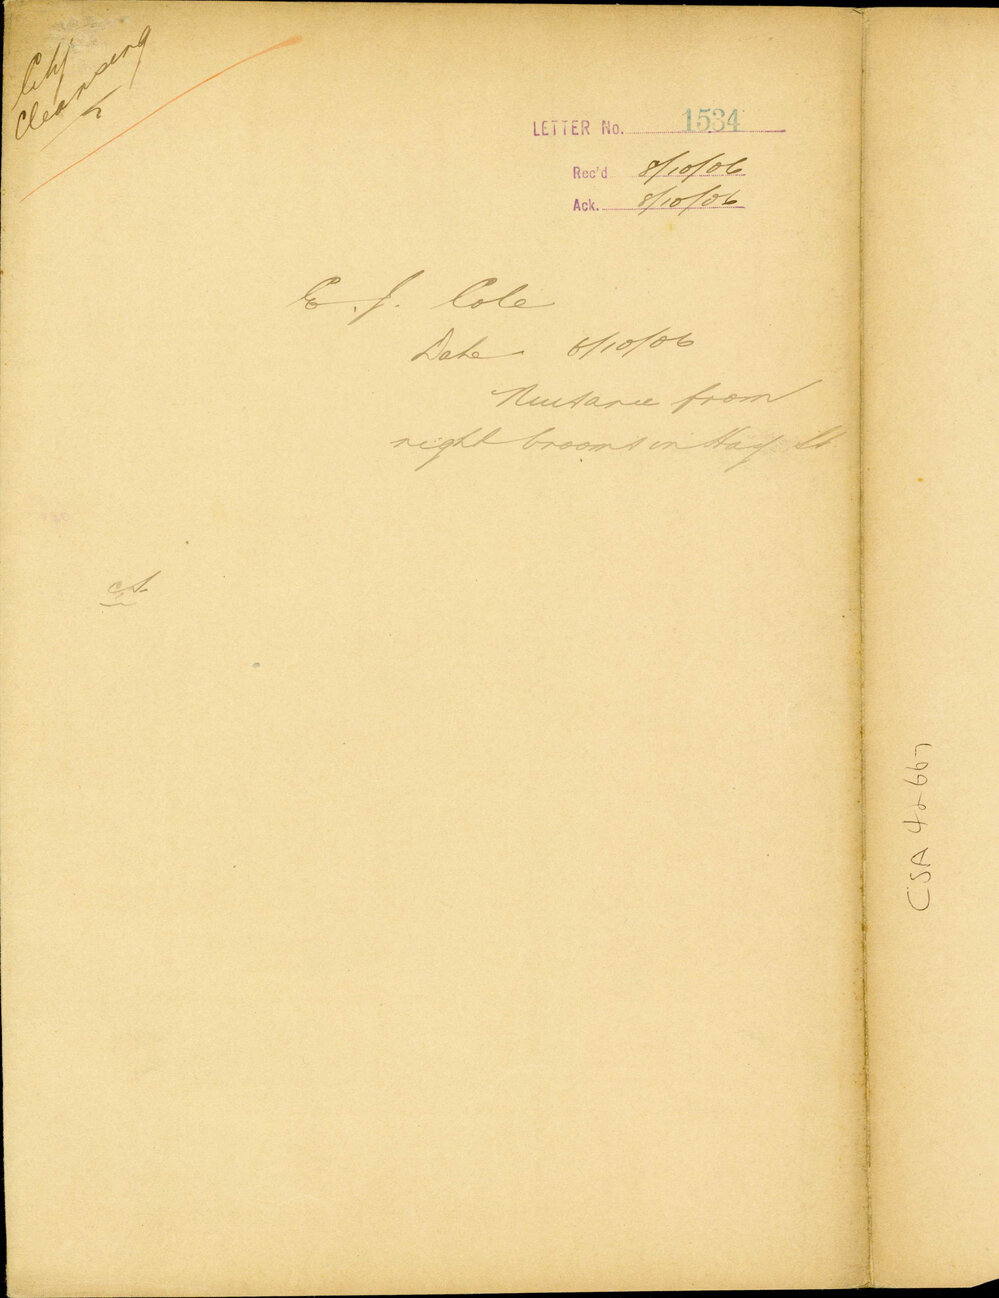 City
Cleansing
LETTER No. 1534
Rec'd 8/10/06
Ack. 8/10/06
E. J. Cole
Date 8/10/06
Nuisance from
night brooms in Hay St.
CSA 42667